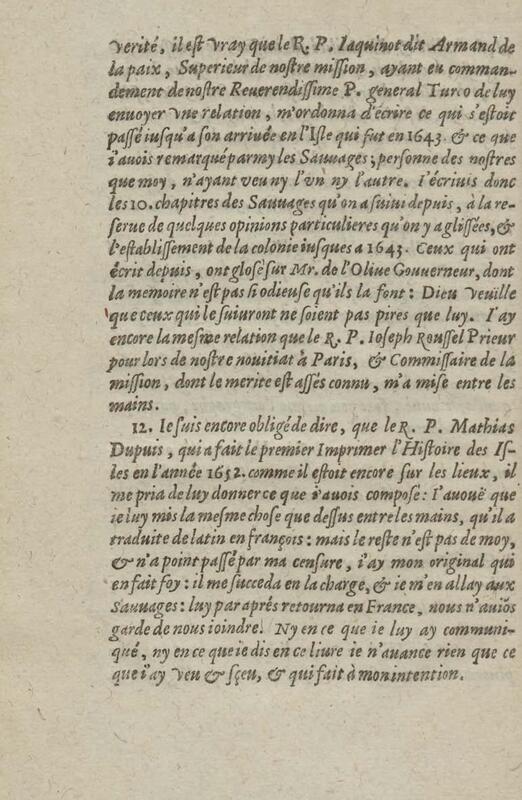 verité, il est vray que le R. P. Iaquinot dit Armand de
la paix, Superieur de nostre mission, ayant eu comman-
dement de nostre Reuerendissime P. general Turco de luy
enuoyer vne relation, m'ordonna d'écrire ce qui s'estoit
passé iusqu'a son arriuée en l'Isle qui fut en 1643. & ce que
i'auois remarqué parmy les Sauuages; personne des nostres
que moy, n'ayant veu ny l'vn ny l'autre. I'écriuis donc
les 10. chapitres des Sauuages qu'on a suiui depuis, à la re-
serue de quelques opinions particulieres qu'on y a glissées, &
l'establissement de la colonie iusques a 1643. Ceux qui ont
écrit depuis, ont glosé sur Mr. de l'Oliue Gouuerneur, dont
la memoire n'est pas si odieuse qu'ils la font: Dieu veüille
que ceux qui le suiuront ne soient pas pires que luy. I'ay
encore la mesme relation que le R. P. Ioseph Roussel Prieur
pour lors de nostre nouitiat à Paris, & Commissaire de la
mission, dont le merite est assés connu, m'a mise entre les
mains.
12. Ie suis encore obligé de dire, que le R. P. Mathias
Dupuis, qui a fait le premier Imprimer l'Histoire des Is-
les en l'année 1652. comme il estoit encore sur les lieux, il
me pria de luy donner ce que i'auois composé: I'auouë que
ie luy mis la mesme chose que dessus entre les mains, qu'il a
traduite de latin en françois: mais le reste n'est pas de moy,
& n'a point passé par ma censure, i'ay mon original qui
en fait foy: il me succeda en la charge, & ie m'en allay aux
Sauuages: luy par aprés retourna en France, nous n'auiõs
garde de nous ioindre. Ny en ce que ie luy ay communi-
qué, ny en ce que ie dis en ce liure ie n'auance rien que ce
que i'ay veu & sçeu, & qui fait à mon intention.